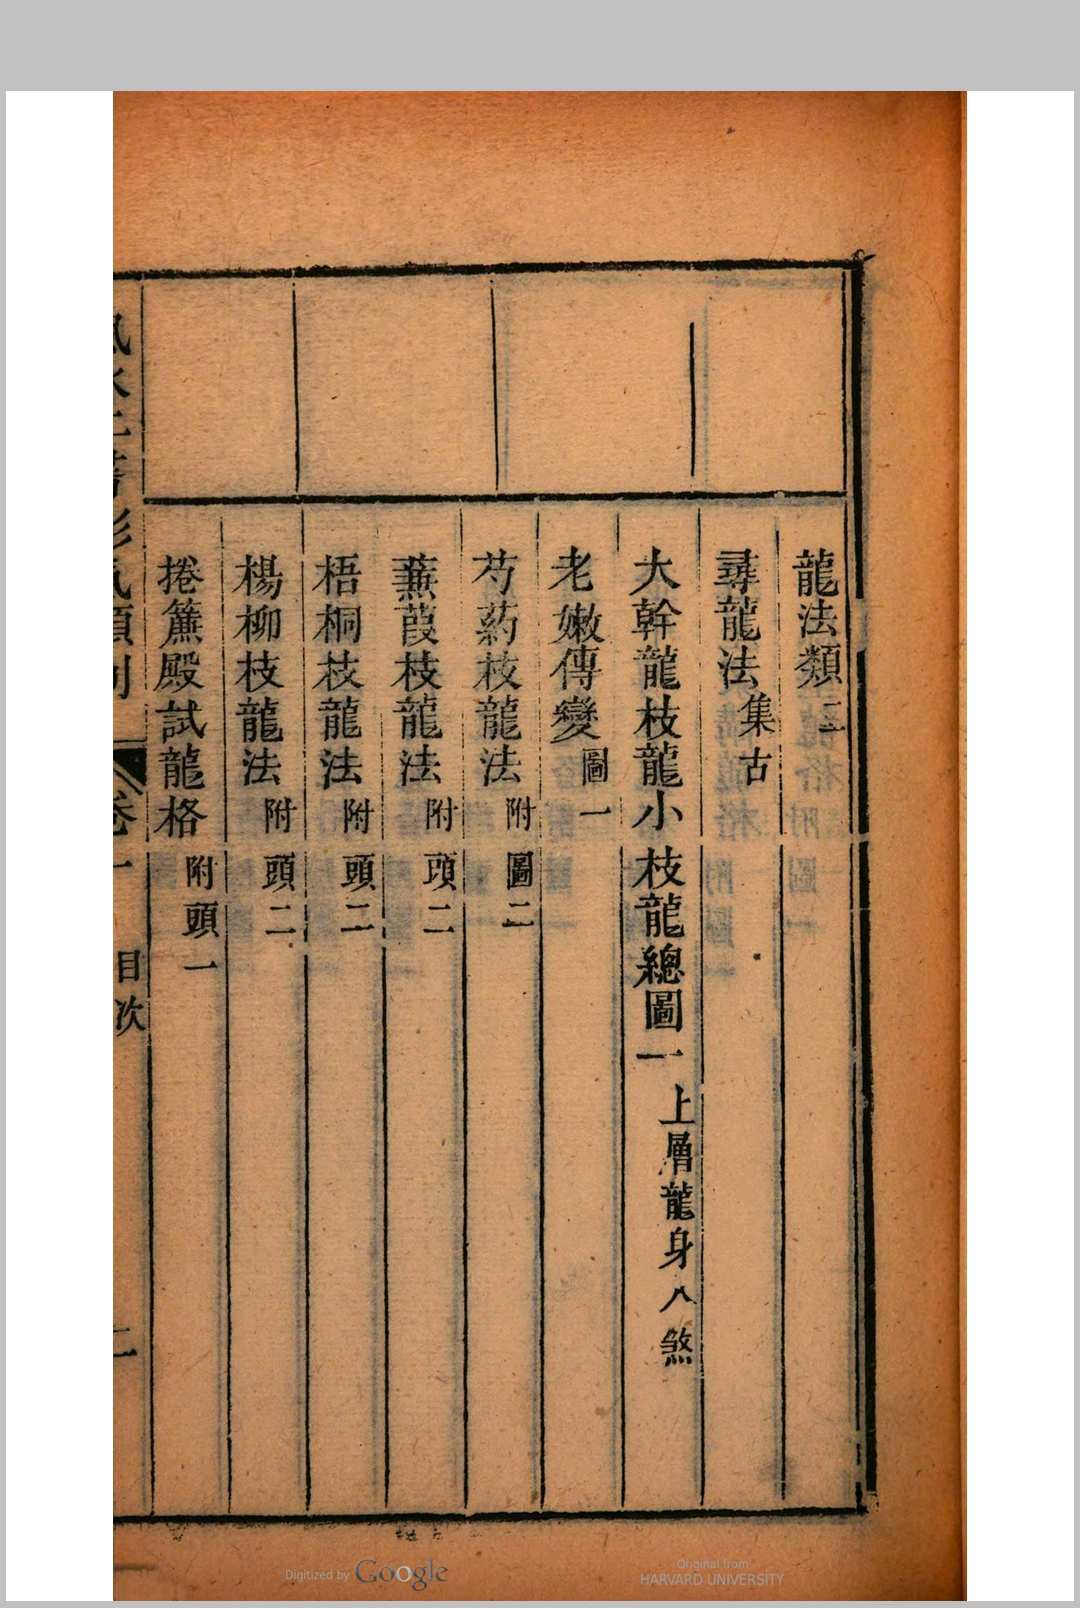 龍法類二
尋龍法 集古
大幹龍枝龍小枝龍總圖一 上層龍身八煞
老嫩傳變 圖一
芍葯枝龍法 附圖二
蕪葭枝龍法 附頭二
梧桐枝龍法 附頭二
楊柳枝龍法 附頭二
捲簾殿試龍格 附頭一
目次
二
Digitized by Google
Original from
HARVARD UNIVERSITY